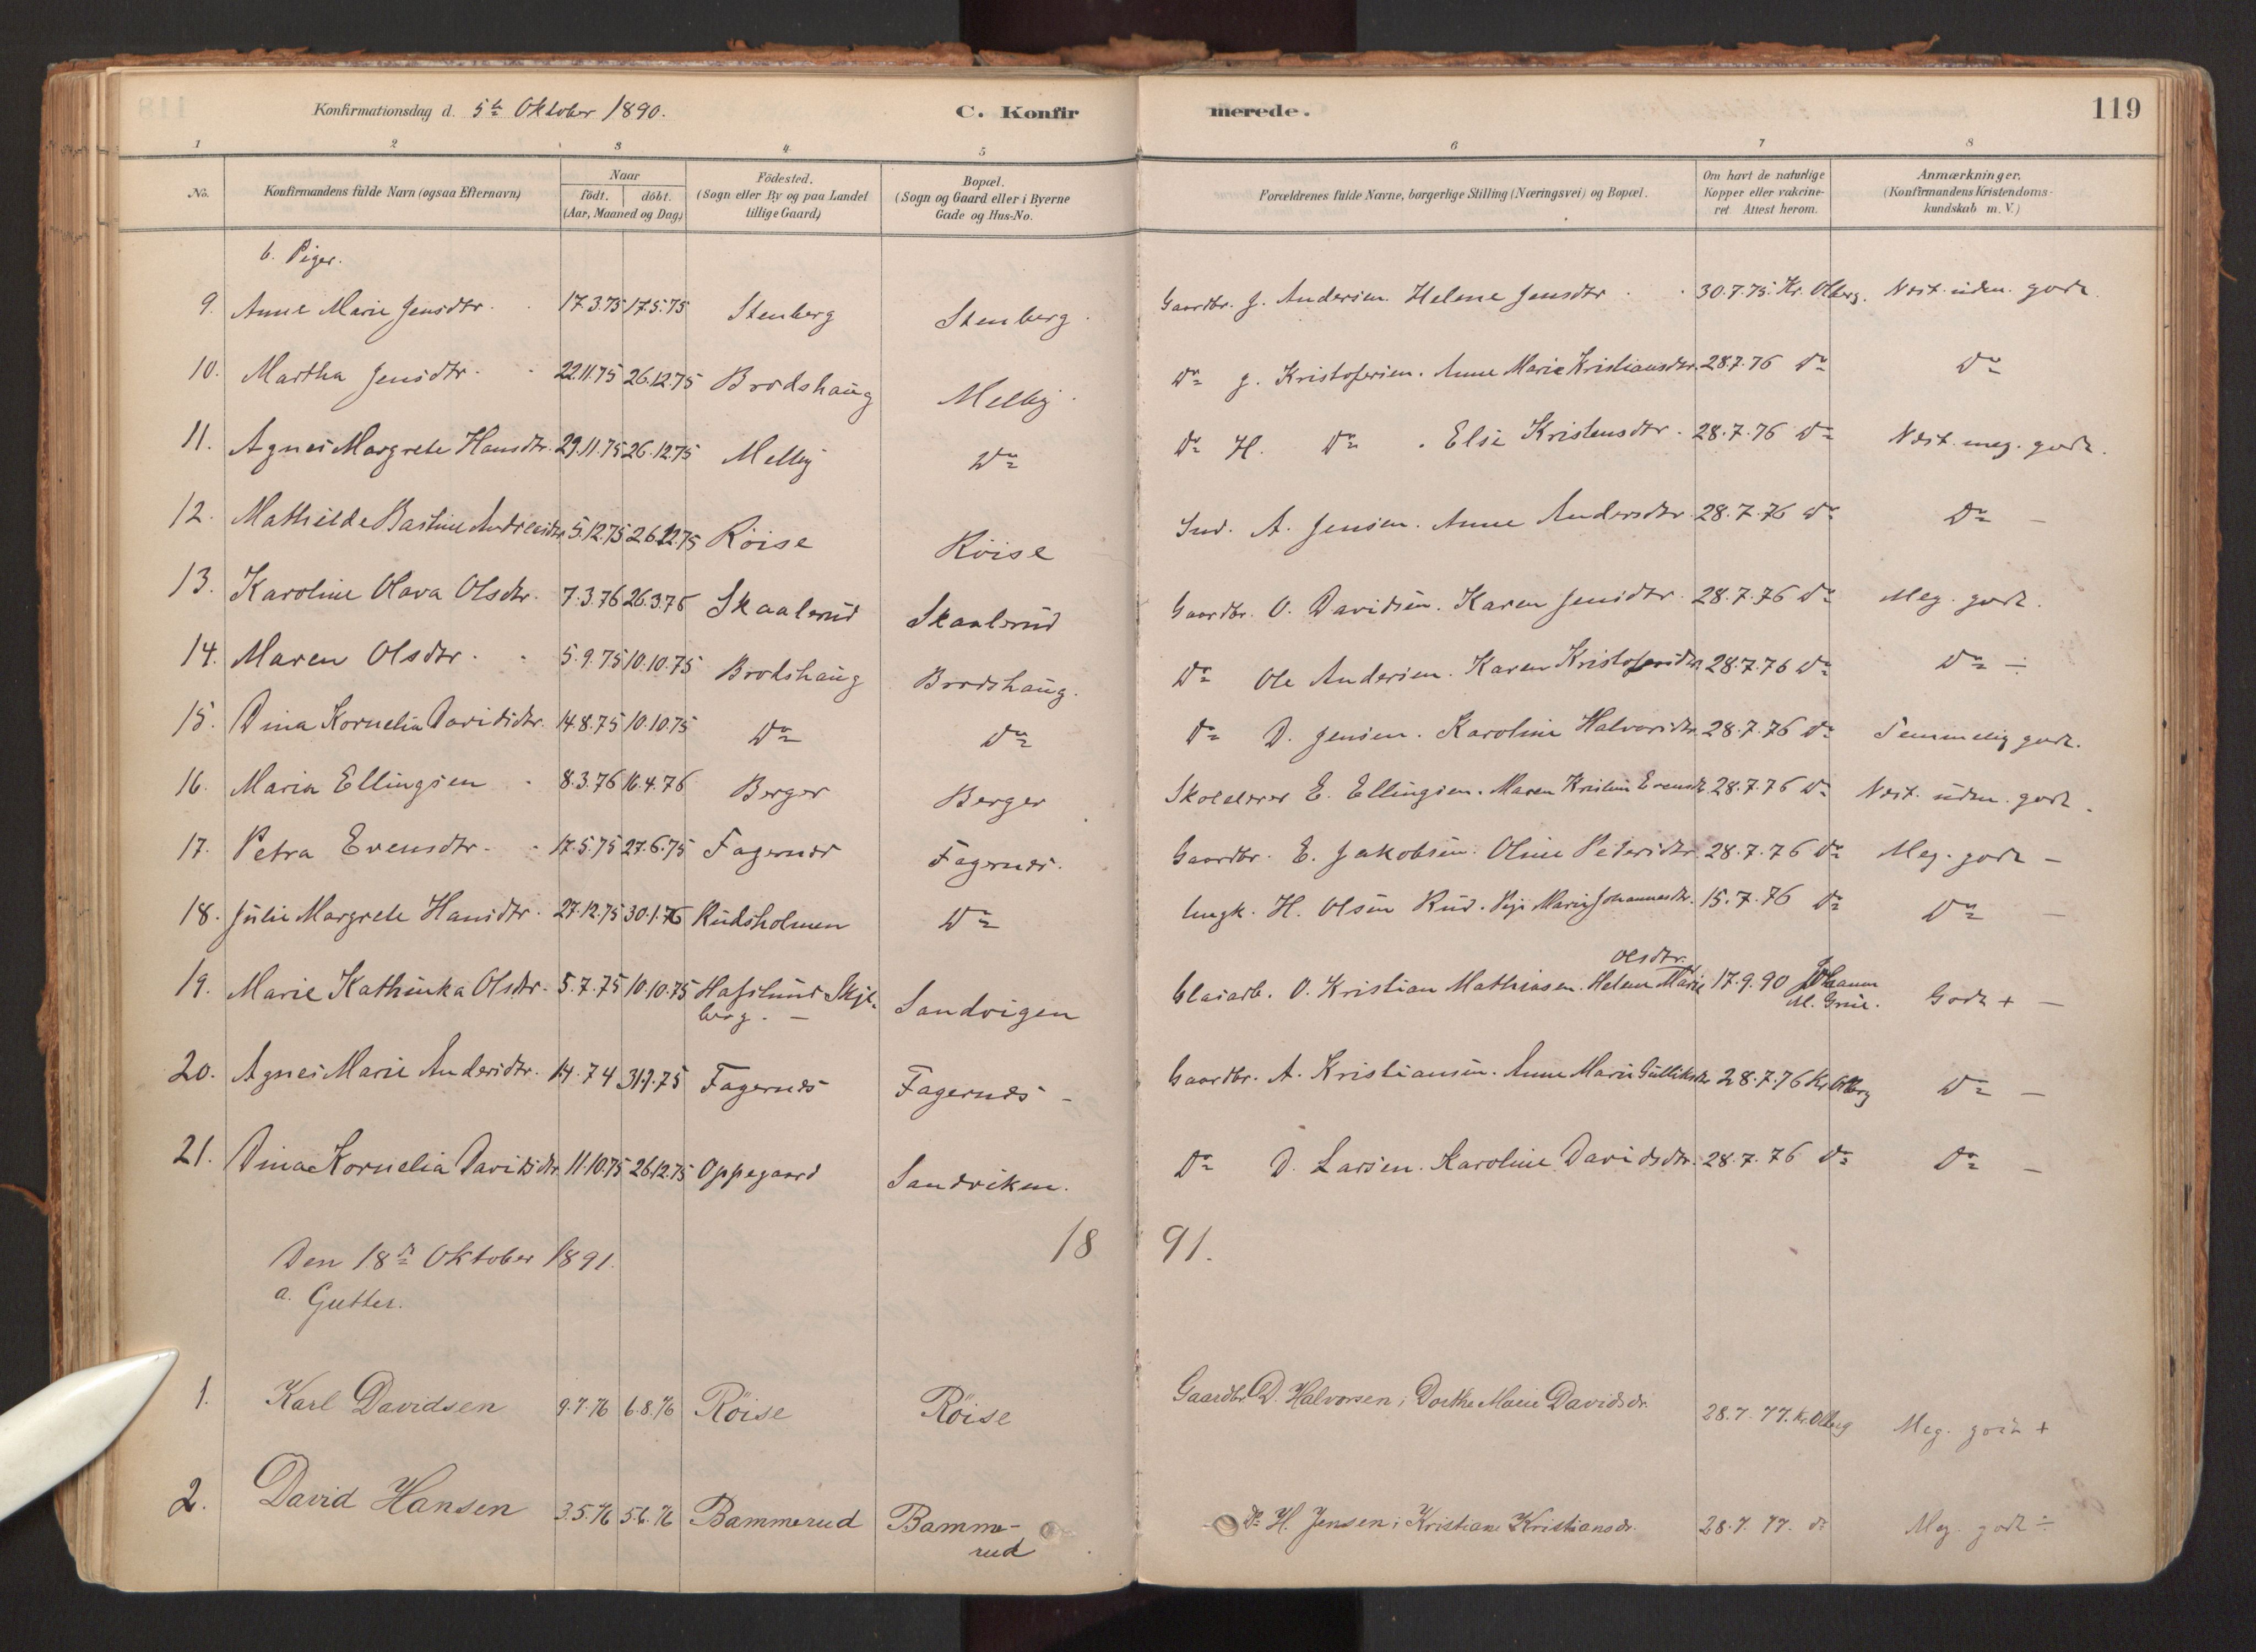 Konfirmationsdag d. 5te Oktober 1890. C. Konfirmerede. 119
1 2 3 4 5 6 7 8
No. Konfirmandens fulde Navn (ogsaa Efternavn) Naar födt. döbt. (Aar, Maaned og Dag) Födested. (Sogn eller By og paa Landet tillige Gaard) Bopæl. (Sogn og Gaard eller i Byerne Gade og Hus-No. Forældrenes fulde Navne, borgerlige Stilling (Næringsvei) og Bopæl. Om havt de naturlige Kopper eller vakcineret Attest herom. Anmærkninger. (Konfirmandens Kristendomskundskab m. V.)
b. Piger.
9. Anne Marie Jensdtr. 17.3.75 17.5.75 Stenberg Stenberg. Gaardbr. J. Andersen. Helene Jensdtr 30.7.75. Kr. Olberg. Næst. uden. godt.
10. Martha Jensdtr. 22.11.75 26.12.75 Brodshaug Melby. Do J. Kristofersen. Anne Marie Kristiansdtr. 28.7.76 Do Do
11. Agnes Margrete Hansdtr. 29.11.75 26.12.75 Melby Do Do H. Do. Else Kristensdtr. 28.7.76 Do Næst. meg. godt.
12. Mathilde Bastine Andreasdtr 5.12.75 26.12.75 Röise Röise Ind. A. Jensen. Anne Andersdtr. 28.7.76 Do Do –
13. Karoline Olava Olsdtr. 7.3.76 26.3.76 Skaalerud Skaalerud Gaardbr. O. Davidsen. Karen Jensdtr. 28.7.76 Do Meg. godt.
14. Maren Olsdtr. 5.9.75 10.10.75 Brodshaug Brodshaug. Do Ole Andersen. Karen Kristofersdtr 28.7.76 Do Do ÷
15. Dina Kornelia Davidsdtr. 14.8.75 10.10.75 Do Do Do D. Jensen. Karoline Halvorsdtr. 28.7.76 Do Temmelig godt.
16. Maria Ellingsen 8.3.76 16.4.76 Berger Berger Skolelærer E. Ellingsen. Maren Kristine Evensdtr 28.7.76 Do Næst. uden. godt.
17. Petra Evensdtr. 17.5.75 27.6.75 Fagernæs Fagernæs. Gaardbr. E. Jakobsen. Oline Petersdtr. 28.7.76 Do Meg. godt –
18. Julie Margrete Hansdtr. 27.12.75 30.1.76 Rudsholmen Do Ungk. H. Olsen Rud. Pige Marie Johannesdtr. 15.7.76 Do Do –
Olsdtr.
19. Marie Kathinka Olsdtr. 5.7.75 10.10.75 Hafslund Skjeberg. – Sandvigen Glasarb. O. Kristian Mathiasen. Helene Marie 17.9.90 M. Godt + –
20. Agnes Marie Andersdtr. 74 75 Fagernæs Fagernæs – Gaardbr. A. Kristiansen. Anne Marie Gulliksdtr 28.7.76 Kr. Olberg Do –
21. Dina Kornelia Davidsdtr. 11.10.75 26.12.75 Oppegaard Sandviken. Do D. Larsen. Karoline Davidsdtr. 28.7.76 Do Do –
1891.
Den 18de Oktober 1891.
a. Gutter.
1. Karl Davidsen 9.7.76 6.8.76 Röise Röise Gaardbr. D. Halvorsen; Dorthe Marie Davidsdr. 28.7.77. Kr. Olberg Meg. godt +
2. David Hansen 3.5.76 5.6.76 Bammerud Bammerud Do H. Jensen; Kristiane Kristiansdr. 28.7.77. do Meg. godt ÷